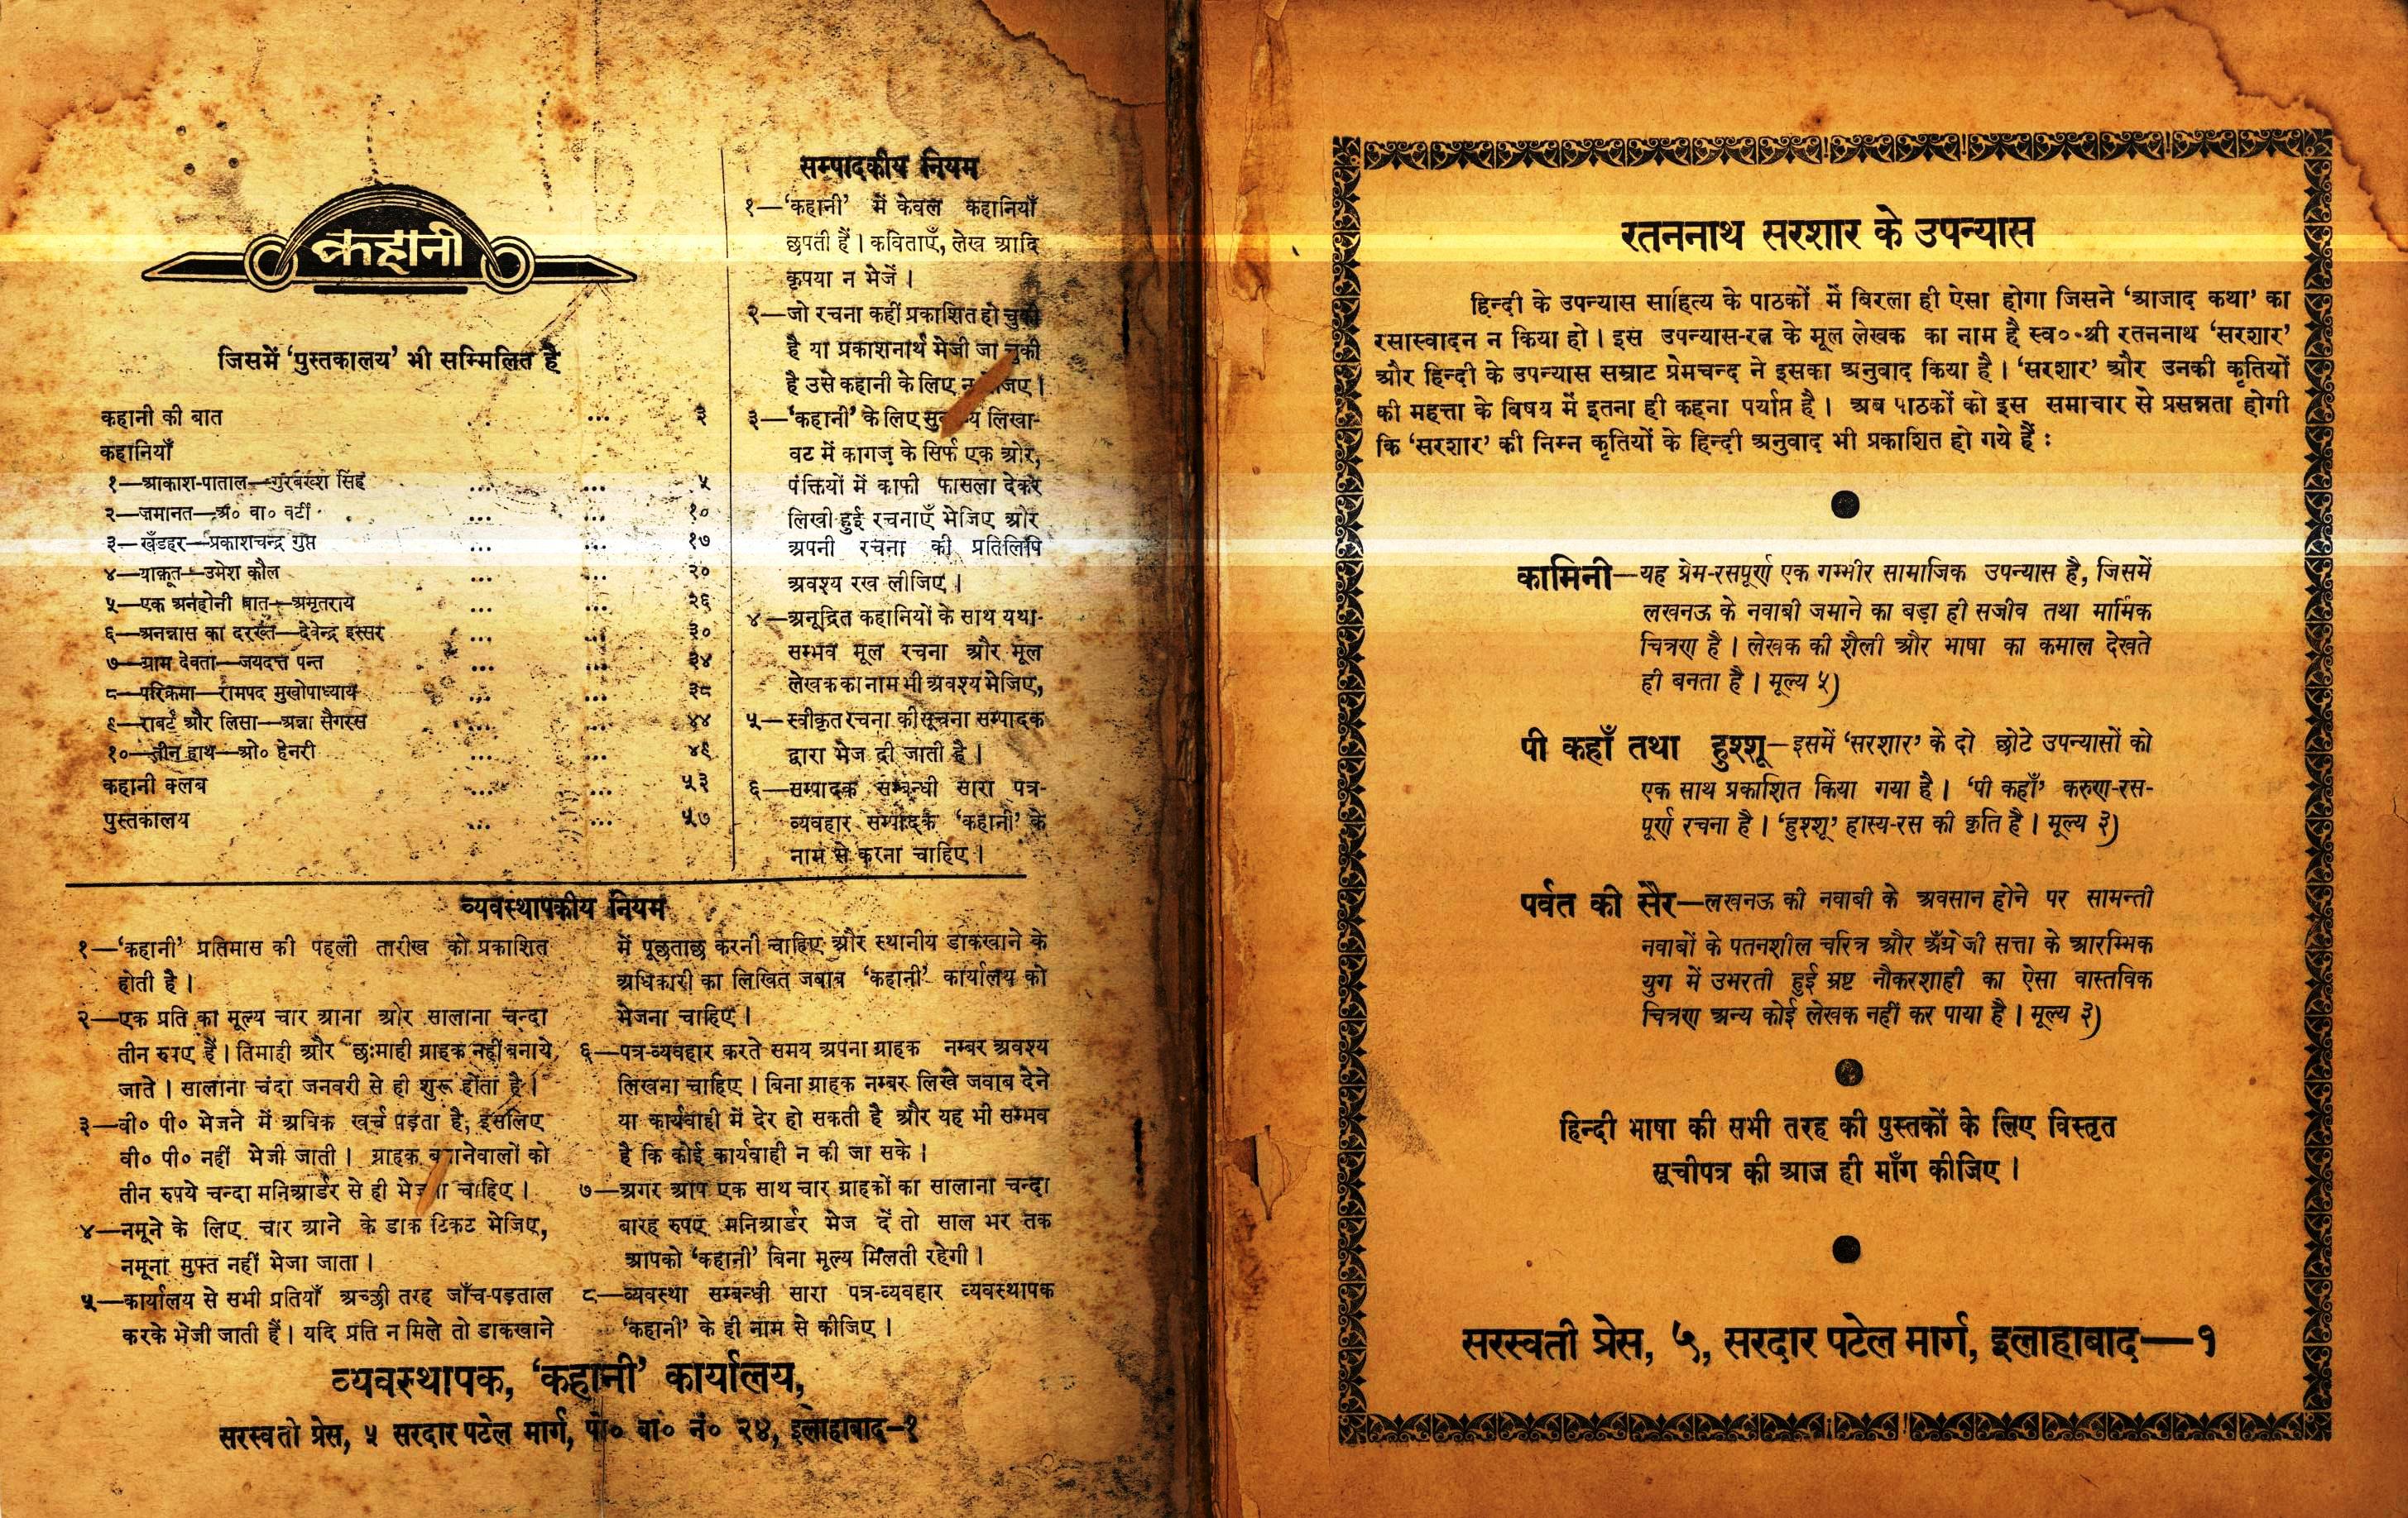 कहानी
जिसमें ‘पुस्तकालय’ भी सम्मिलित है
कहानी की बात ... ... ३
कहानियाँ
१—आकाश-पाताल—गुरबख्श सिंह ... ... ५
२—ज़मानत—अ० वा० वर्टी ... ... १०
३—खँडहर—प्रकाशचन्द्र गुप्त ... ... १७
४—याक़ूत—उमेश कौल ... ... २०
५—एक अनहोनी बात—अमृतराय ... ... २६
६—अनन्नास का दरख्त—देवेन्द्र इस्सर ... ... ३०
७—ग्राम देवता—जयदत्त पन्त ... ... ३४
८—परिक्रमा—रामपद मुखोपाध्याय ... ... ३८
९—राबर्ट और लिसा—अन्ना सैगरस ... ... ४४
१०—तीन हाथ—ओ० हेनरी ... ... ४९
कहानी क्लब ... ... ५३
पुस्तकालय ... ... ५७
सम्पादकीय नियम
१—‘कहानी’ में केवल कहानियाँ
छपती हैं। कविताएँ, लेख आदि
कृपया न भेजें।
२—जो रचना कहीं प्रकाशित हो चुकी
है या प्रकाशनार्थ भेजी जा चुकी
है उसे कहानी के लिए न
३—‘कहानी’ के लिए लिखा-
वट में कागज़ के सिर्फ एक ओर,
पंक्तियों में काफी फासला देकर
लिखी हुई रचनाएँ भेजिए और
अपनी रचना की प्रतिलिपि
अवश्य रख लीजिए।
४—अनूदित कहानियों के साथ यथा-
सम्भव मूल रचना और मूल
लेखक का नाम भी अवश्य भेजिए,
५—स्वीकृत रचना की सूचना सम्पादक
द्वारा भेज दी जाती है।
६—सम्पादक सम्बन्धी सारा पत्र-
व्यवहार सम्पादक ‘कहानी’ के
नाम से करना चाहिए।
व्यवस्थापकीय नियम
१—‘कहानी’ प्रतिमास की पहली तारीख को प्रकाशित
होती है।
२—एक प्रति का मूल्य चार आना और सालाना चन्दा
तीन रुपए है। तिमाही और छःमाही ग्राहक नहीं बनाये
जाते। सालाना चंदा जनवरी से ही शुरू होता है।
३—वी० पी० भेजने में अधिक खर्च पड़ता है, इसलिए
वी० पी० नहीं भेजी जाती। ग्राहक बनानेवालों को
तीन रुपये चन्दा मनिआर्डर से ही भेजना चाहिए।
४—नमूने के लिए चार आने के डाक टिकट भेजिए,
नमूना मुफ्त नहीं भेजा जाता।
५—कार्यालय से सभी प्रतियाँ अच्छी तरह जाँच-पड़ताल
करके भेजी जाती हैं। यदि प्रति न मिले तो डाकखाने
में पूछताछ करनी चाहिए और स्थानीय डाकखाने के
अधिकारी का लिखित जवाब ‘कहानी’ कार्यालय को
भेजना चाहिए।
६—पत्र-व्यवहार करते समय अपना ग्राहक नम्बर अवश्य
लिखना चाहिए। बिना ग्राहक नम्बर लिखे जवाब देने
या कार्यवाही में देर हो सकती है और यह भी सम्भव
है कि कोई कार्यवाही न की जा सके।
७—अगर आप एक साथ चार ग्राहकों का सालाना चन्दा
बारह रुपए मनिआर्डर भेज दें तो साल भर तक
आपको ‘कहानी’ बिना मूल्य मिलती रहेगी।
८—व्यवस्था सम्बन्धी सारा पत्र-व्यवहार व्यवस्थापक
‘कहानी’ के ही नाम से कीजिए।
व्यवस्थापक, ‘कहानी’ कार्यालय,
सरस्वती प्रेस, ५ सरदार पटेल मार्ग, पो० बा० नं० २४, इलाहाबाद—१
रतननाथ सरशार के उपन्यास
हिन्दी के उपन्यास साहित्य के पाठकों में बिरला ही ऐसा होगा जिसने ‘आजाद कथा’ का
रसास्वादन न किया हो। इस उपन्यास-रत्न के मूल लेखक का नाम है स्व० श्री रतननाथ ‘सरशार’
और हिन्दी के उपन्यास सम्राट प्रेमचन्द ने इसका अनुवाद किया है। ‘सरशार’ और उनकी कृतियों
की महत्ता के विषय में इतना ही कहना पर्याप्त है। अब पाठकों को इस समाचार से प्रसन्नता होगी
कि ‘सरशार’ की निम्न कृतियों के हिन्दी अनुवाद भी प्रकाशित हो गये हैं :
कामिनी—यह प्रेम-रसपूर्ण एक गम्भीर सामाजिक उपन्यास है, जिसमें
लखनऊ के नवाबी जमाने का बड़ा ही सजीव तथा मार्मिक
चित्रण है। लेखक की शैली और भाषा का कमाल देखते
ही बनता है। मूल्य ५)
पी कहाँ तथा हुश्शू—इसमें ‘सरशार’ के दो छोटे उपन्यासों को
एक साथ प्रकाशित किया गया है। ‘पी कहाँ’ करुण-रस-
पूर्ण रचना है। ‘हुश्शू’ हास्य-रस की कृति है। मूल्य ३)
पर्वत की सैर—लखनऊ की नवाबी के अवसान होने पर सामन्ती
नवाबों के पतनशील चरित्र और अँग्रेजी सत्ता के आरम्भिक
युग में उभरती हुई भ्रष्ट नौकरशाही का ऐसा वास्तविक
चित्रण अन्य कोई लेखक नहीं कर पाया है। मूल्य ३)
हिन्दी भाषा की सभी तरह की पुस्तकों के लिए विस्तृत
सूचीपत्र की आज ही माँग कीजिए।
सरस्वती प्रेस, ५, सरदार पटेल मार्ग, इलाहाबाद—१